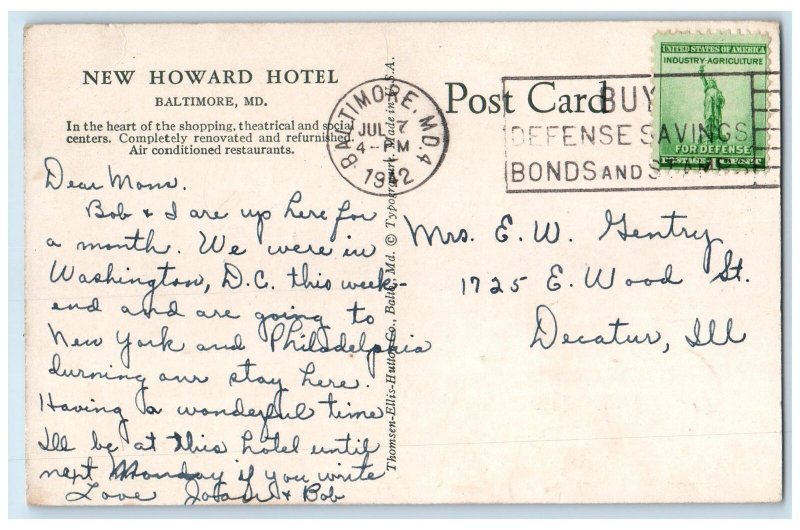 NEW HOWARD HOTEL
BALTIMORE, MD.
In the heart of the shopping, theatrical and social
centers. Completely renovated and refurnished.
Air conditioned restaurants.
Dear Mom.
Bob & I are up here for
a month. We were in
Washington, D.C. this week-
end and are going to
New York and Philadelphia
durning our stay here.
Having a wonderful time
I'll be at this hotel until
next Monday if you write
Love & Bob
Thomsen-Ellis-Hutton Co., Balto., Md. © Made in U.S.A.
Post Card
BALTIMORE, MD. 4
JUL 7
4-PM
1942
BUY
DEFENSE SAVINGS
BONDS AND
UNITED STATES OF AMERICA
INDUSTRY-AGRICULTURE
FOR DEFENSE
POSTAGE 1
Mrs. E. W. Gentry
1725 E. Wood St.
Decatur, Ill